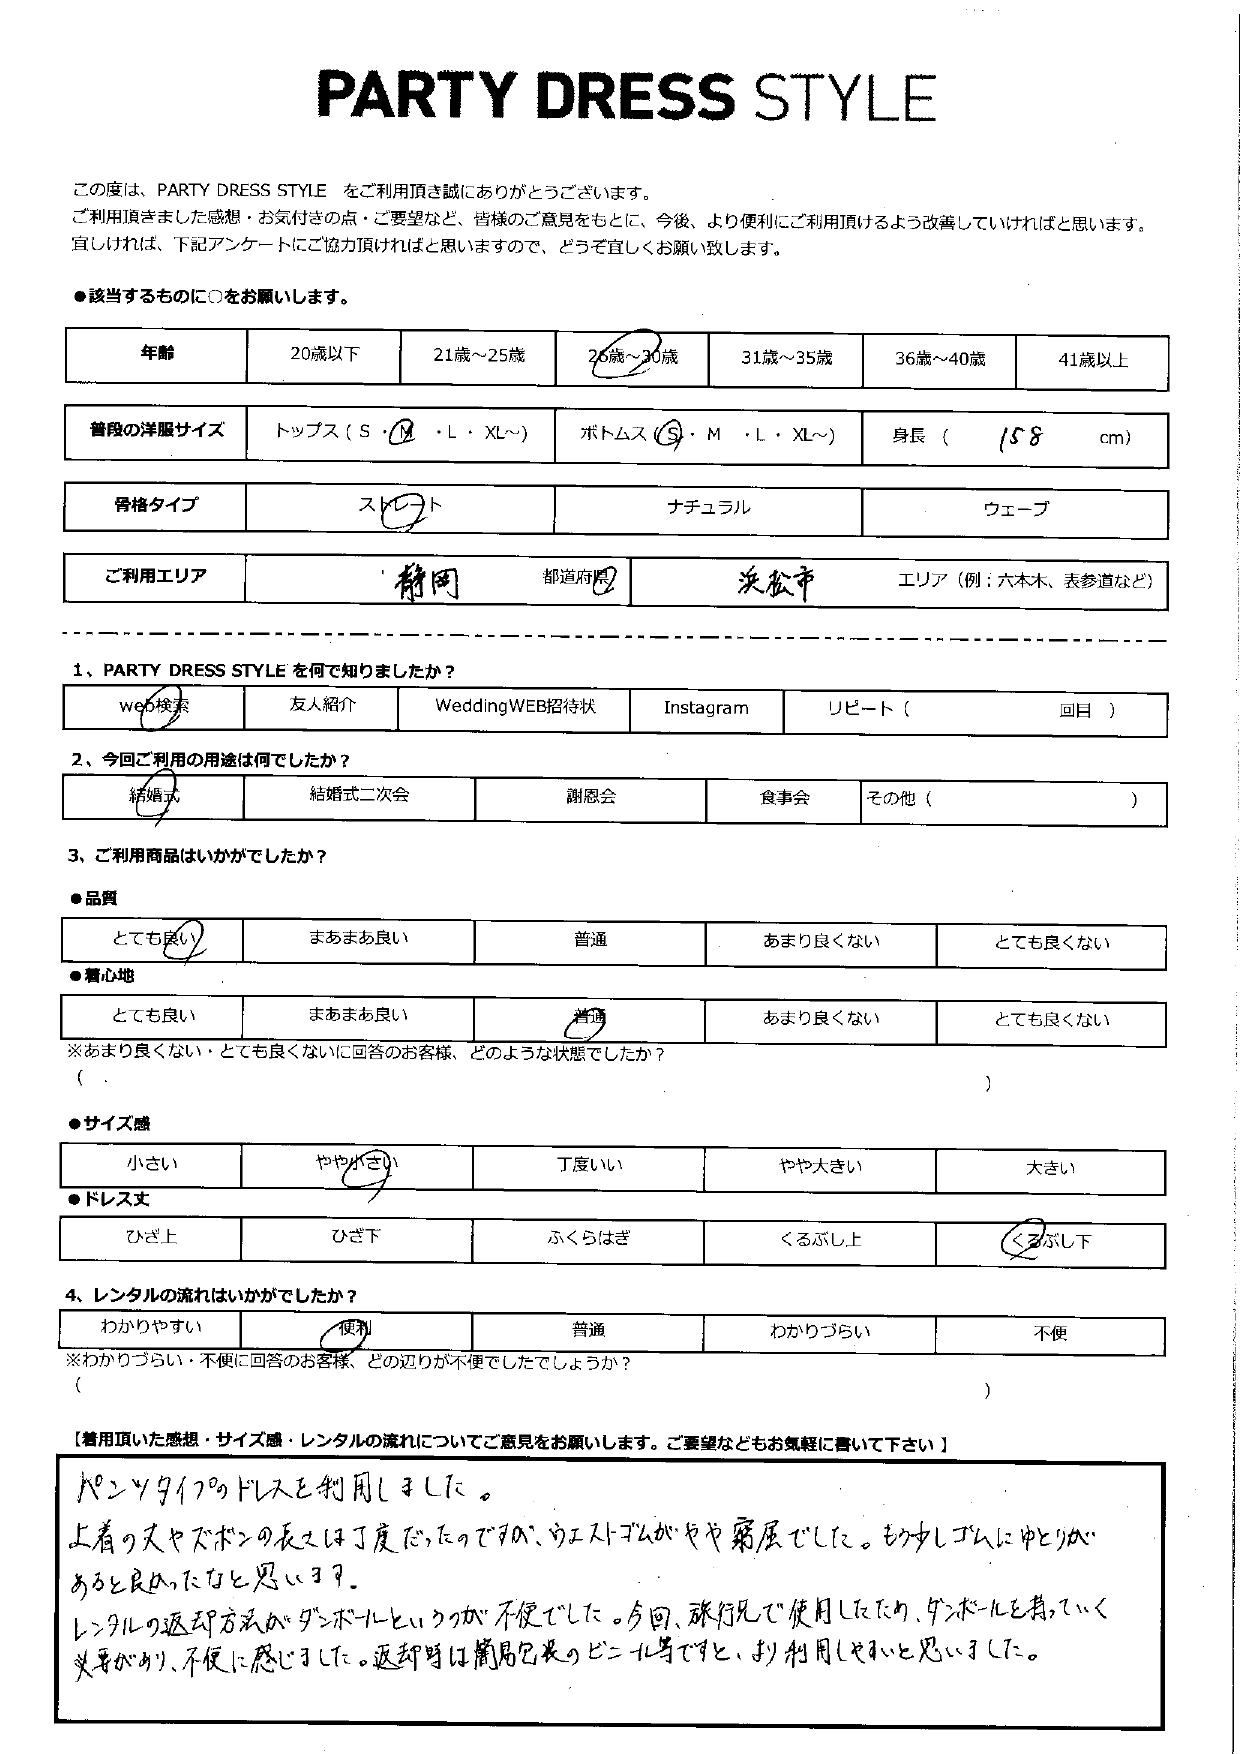 PARTY DRESS STYLE
この度は、PARTY DRESS STYLE をご利用頂き誠にありがとうございます。
ご利用頂きました感想・お気付きの点・ご要望など、皆様のご意見をもとに、今後、より便利にご利用頂けるよう改善していければと思います。
宜しければ、下記アンケートにご協力頂ければと思いますので、どうぞ宜しくお願い致します。
●該当するものに○をお願いします。
年齢 20歳以下 21歳～25歳 26歳～30歳 31歳～35歳 36歳～40歳 41歳以上
普段の洋服サイズ トップス ( S ・M ・L ・ XL～) ボトムス (S・ M ・L ・ XL～) 身長 ( 158 cm)
骨格タイプ ストレート ナチュラル ウェーブ
ご利用エリア 静岡 都道府県 浜松市 エリア（例：六本木、表参道など）
1、PARTY DRESS STYLE を何で知りましたか？
web検索 友人紹介 WeddingWEB招待状 Instagram リピート（ 回目 ）
2、今回ご利用の用途は何でしたか？
結婚式 結婚式二次会 謝恩会 食事会 その他（ ）
3、ご利用商品はいかがでしたか？
●品質
とても良い まあまあ良い 普通 あまり良くない とても良くない
●着心地
とても良い まあまあ良い 普通 あまり良くない とても良くない
※あまり良くない・とても良くないに回答のお客様、どのような状態でしたか？
（ ）
●サイズ感
小さい やや小さい 丁度いい やや大きい 大きい
●ドレス丈
ひざ上 ひざ下 ふくらはぎ くるぶし上 くるぶし下
4、レンタルの流れはいかがでしたか？
わかりやすい 便利 普通 わかりづらい 不便
※わかりづらい・不便に回答のお客様、どの辺りが不便でしたでしょうか？
（ ）
【着用頂いた感想・サイズ感・レンタルの流れについてご意見をお願いします。ご要望などもお気軽に書いて下さい 】
パンツタイプのドレスを利用しました。
上着の丈やズボンの長さは丁度だったのですが、ウエストゴムがやや窮屈でした。もう少しゴムにゆとりが
あると良かったなと思います。
レンタルの返却方法がダンボールというのが不便でした。今回、旅行先で使用したため、ダンボールを持っていく
必要があり、不便に感じました。返却時は簡易包装のビニール等ですと、より利用しやすいと思いました。